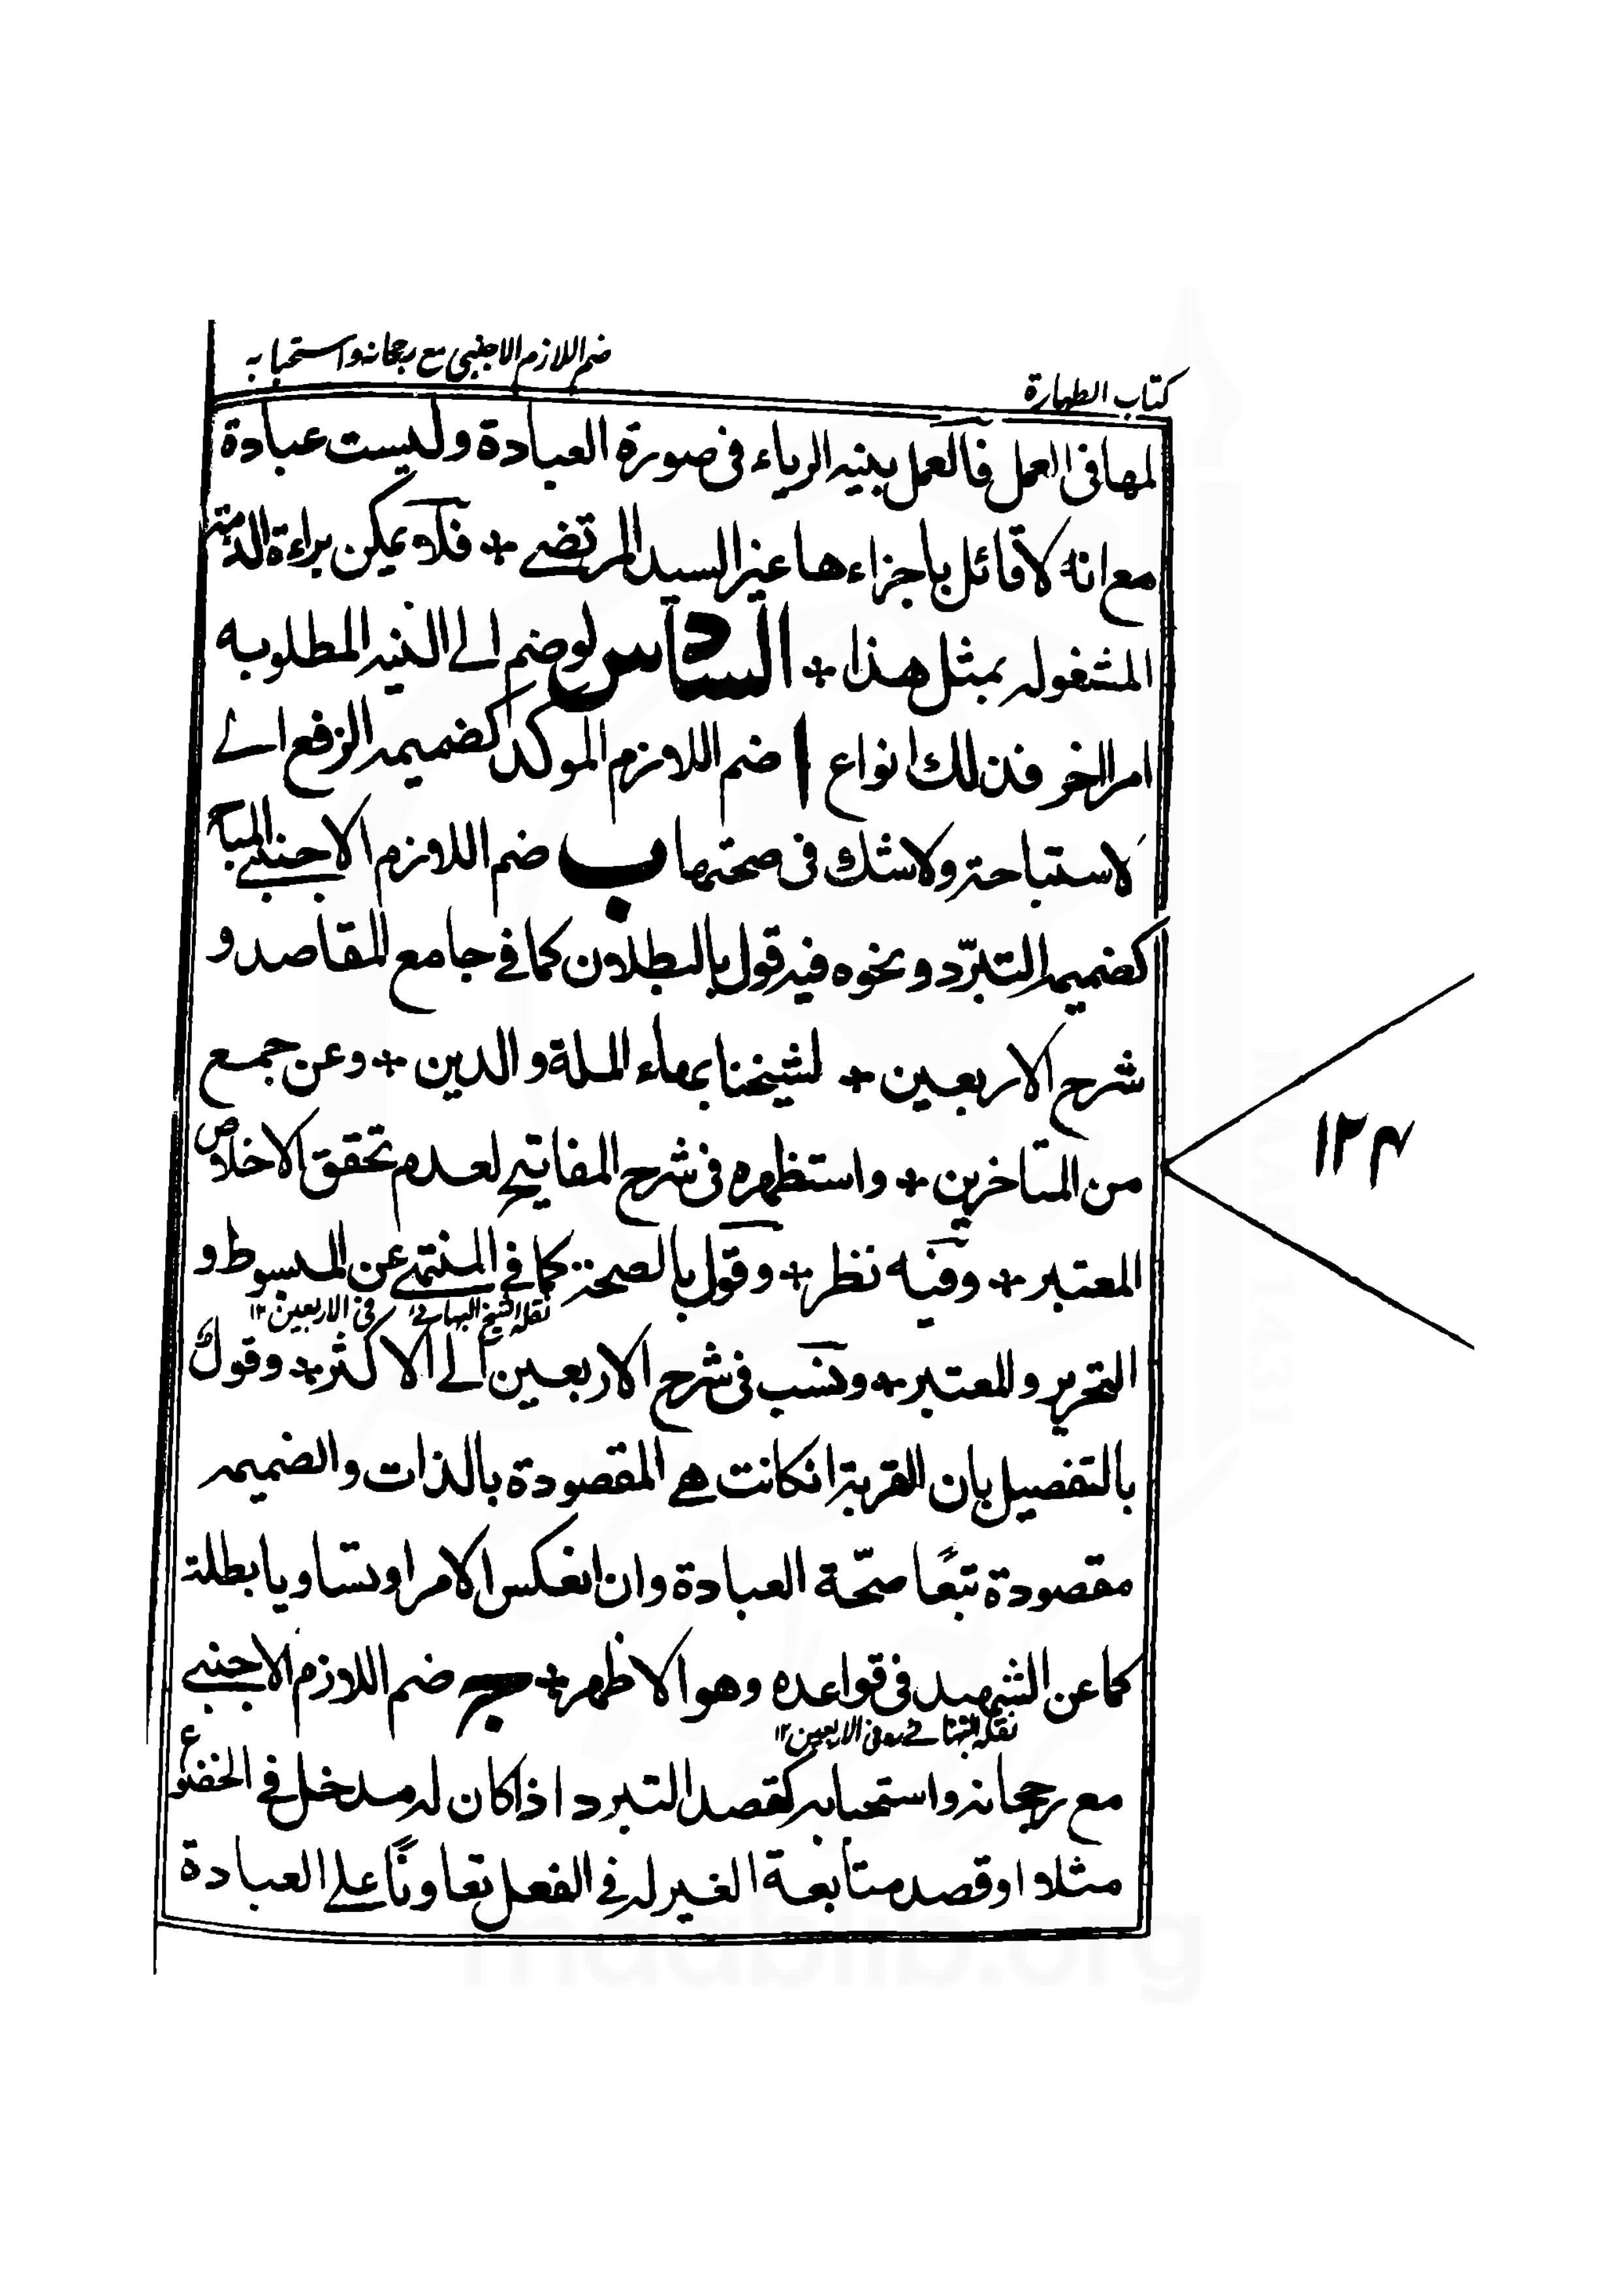 كتاب الطهارة
ضم اللازم الاجنبي مع رجحانه واستحبابه
لها فى العمل فالعمل بنيه الرياء فى صورة العبادة وليست عبادة
مع انه لا قائل باجزاءها غير السيد المرتضے + فلا يمكن براءة الذمة
المشغوله بمثل هذا + السادس لو ضم الے النيه المطلوبه
امرا اخر فذلك انواع ا ضم اللازم الموكد كضميمه الرفع الے
لاستباحة ولا شك فى صحتها ب ضم اللازم الاجنبے المباح
كضميمه التبرّد ونحوه فيه قول بالبطلان كما فے جامع المقاصد و
شرح الاربعين + لشيخنا بهاء الملة والدين + وعن جمع
من المتاخرين + واستظهره فى شرح المفاتيح لعدم تحقق الاخلاص
المعتبر + وفيه نظر + وقول بالصحة كما فے المنتهے عن المبسوط و
نقله الشيخ البهائے فى الاربعين ١٢
التحرير والمعتبر + ونسب فى شرح الاربعين الے الاكثر + وقول
بالتفصيل بان القربة انكانت هے المقصودة بالذات والضميمه
مقصودة تبعًا صحّة العبادة وان انعكس الامر او تساويا بطلت
كما عن الشهيد فى قواعده وهو الاظهر + ج ضم اللازم الاجنبے
نقله البهائے فى الاربعين ١٢
مع رجحانه واستحبابه كقصد التبرد اذا كان له مدخل فے الخضوع
مثلا او قصد متابعة الغير له فے الفعل تعاونًا علے العبادة
١٢٤
maablib.org